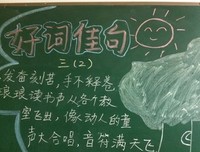 好词佳句
三(2)
发奋刻苦,手不释卷
琅琅读书声从各个教
室飞出,像动人的童
声大合唱,音符满天飞